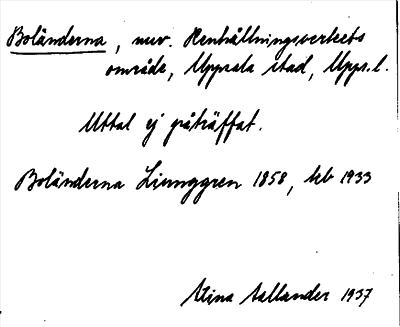 Boländerna, nuv. Renhållningsverkets
område, Uppsala stad, Upps. l.
Uttal ej påträffat.
Boländerna Ljunggren 1858, tcb 1933
Stina Sallander 1937